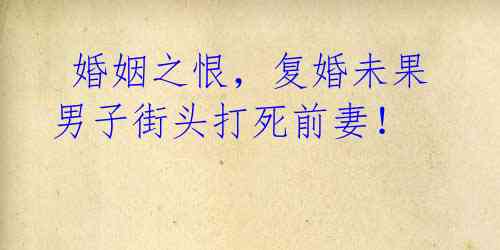 婚姻之恨，复婚未果
男子街头打死前妻！